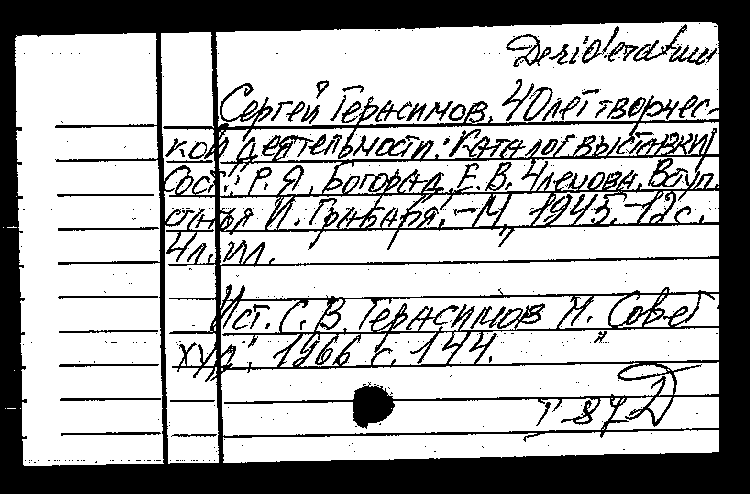 Desideratum
Сергей Герасимов. 40 лет творчес-
кой деятельности: Каталог выставки/
Сост.: Р. Я. Богорад, Е. В. Членова. Вступ.
статья И. Грабаря. - М., 1945. - 12 с.
4 л. ил.
Ист. С. В. Герасимов М. "Совет
худ", 1966 с. 144.